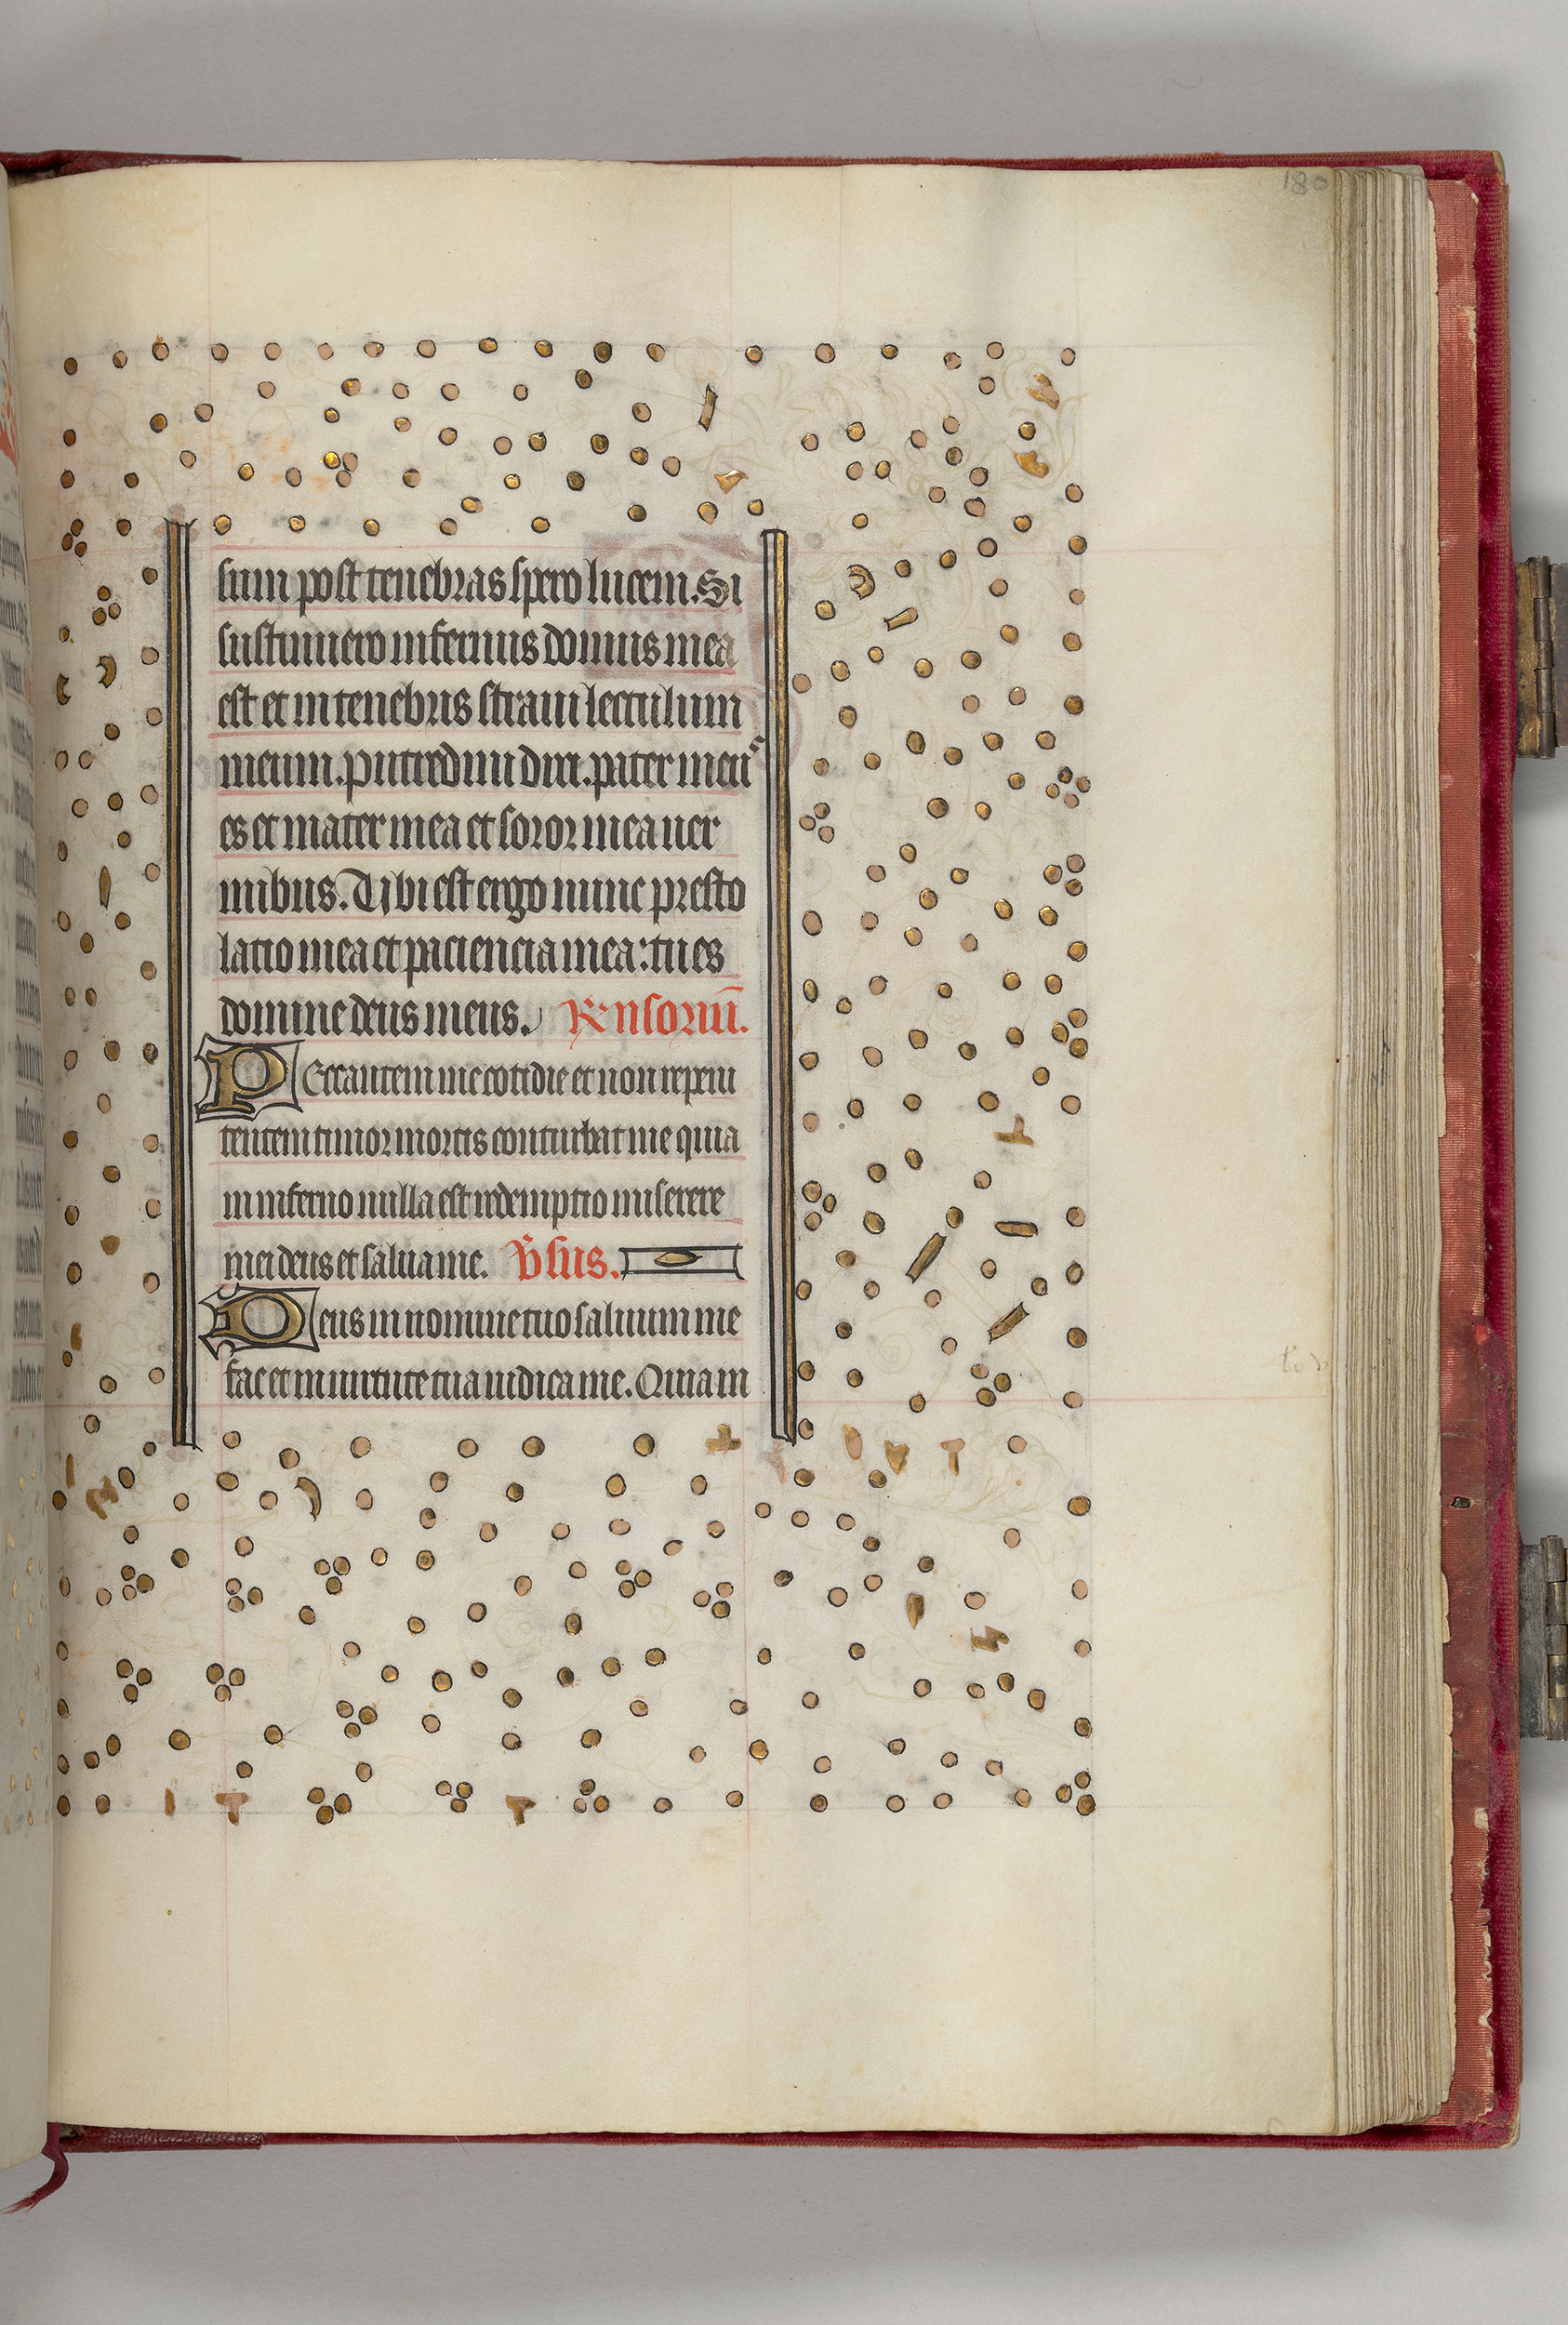 180
sum post tenebras spero lucem. Si
sustinuero infernus domus mea
est et in tenebris straui lectulum
meum. putredini dixi. pater meus
es et mater mea et soror mea uer
mibus. Vbi est ergo nunc presto
latio mea et paciencia mea: tu es
domine deus meus. Rnsoriū.
Peccantem me cotidie et non repeni
tentem timor mortis conturbat me quia
in inferno nulla est redemptio miserere
mei deus et salua me. V̄sus.
Deus in nomine tuo saluum me
fac et in uirtute tua iudica me. Quia in